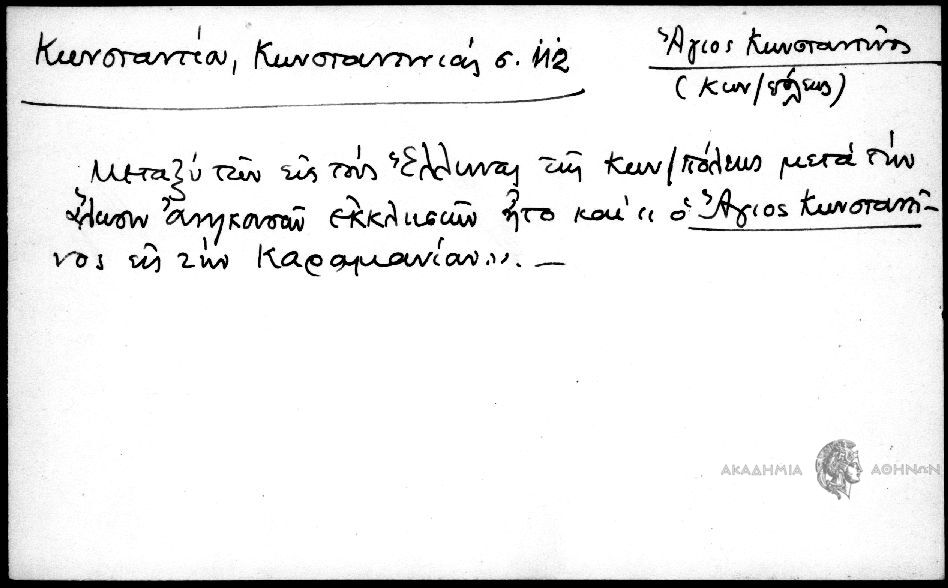 Κωνσταντία, Κωνσταντινιάς σ. 112
Ἅγιος Κωνσταντῖνος
(Κων/πόλεως)
Μεταξύ τῶν εἰς τούς Ἕλληνας τῆς Κων/πόλεως μετά τήν
ἅλωσιν ἀνηκουσῶν ἐκκλησιῶν ἦτο καί « ὁ Ἅγιος Κωνσταντῖ-
νος εἰς τήν Καραμανίαν». —
ΑΚΑΔΗΜΙΑ ΑΘΗΝΩΝ